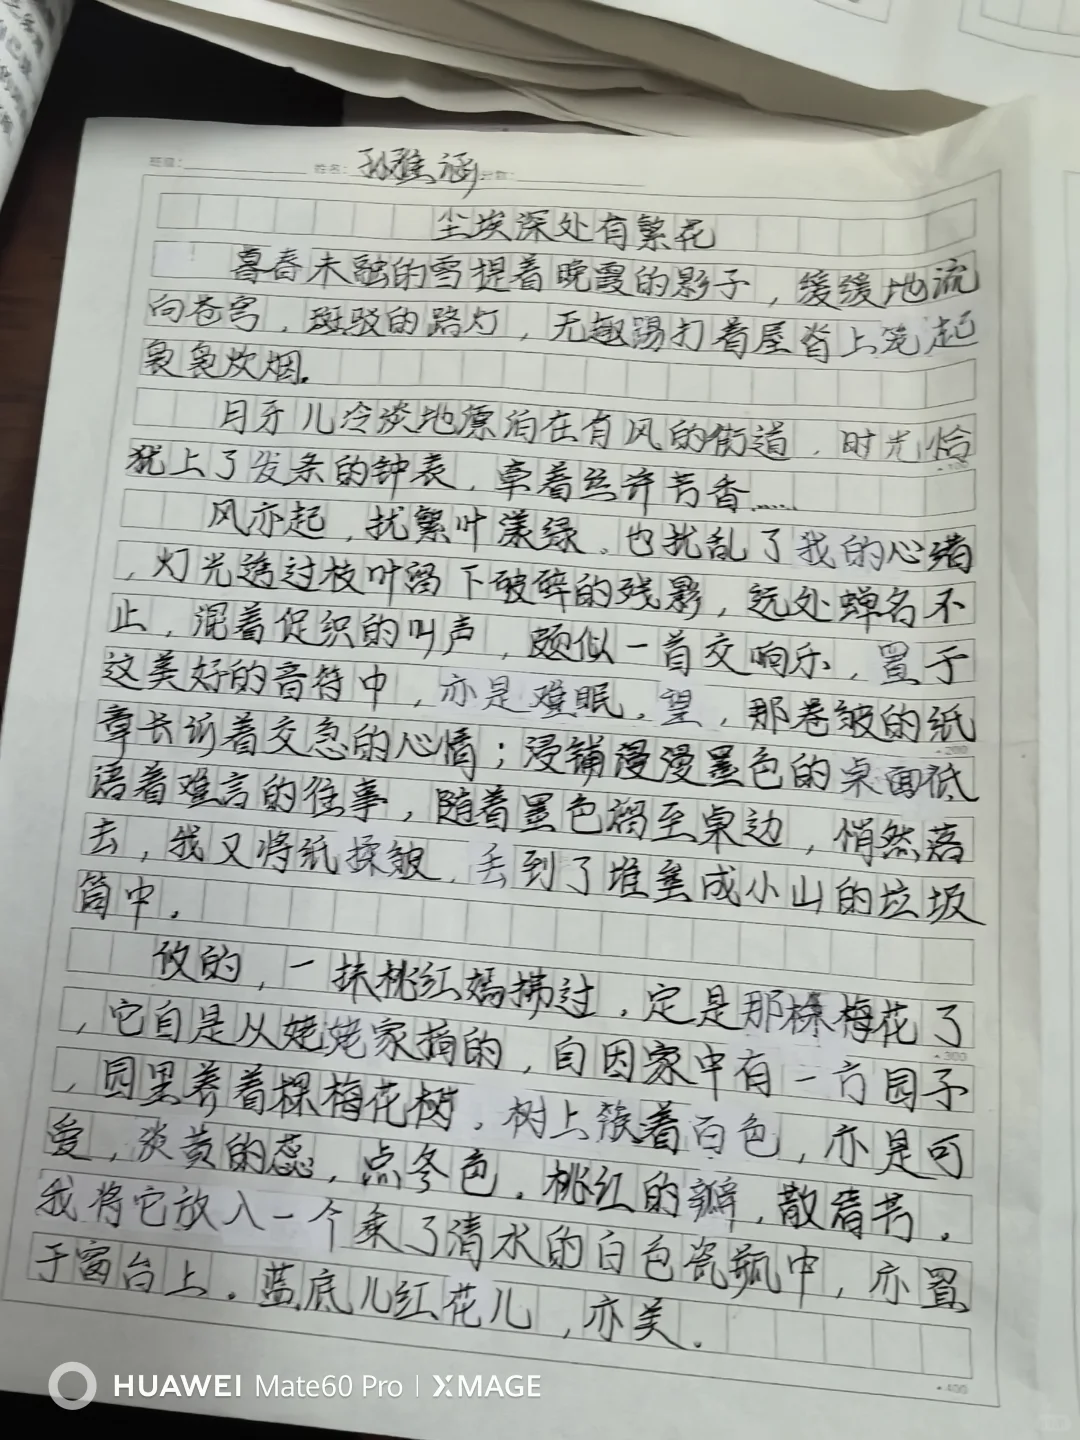 班级： 姓名：孙雅涵 分数：
尘埃深处有繁花
暮春未融的雪提着晚霞的影子，缓缓地流
向苍穹，斑驳的路灯，无趣踢打着屋脊上笼起
袅袅炊烟。
月牙儿冷淡地漂泊在有风的街道，时光恰
犹上了发条的钟表，牵着丝许芳香……
风亦起，扰繁叶漾绿。也扰乱了我的心绪
，灯光透过枝叶留下破碎的残影，远处蝉名不
止，混着促织的叫声，颇似一首交响乐，置于
这美好的音符中，亦是难眠。望，那卷皱的纸
章长诉着交急的心情；浸铺漫漫墨色的桌面低
语着难言的往事，随着墨色熘至桌边，悄然落
去，我又将纸揉皱，丢到了堆垒成小山的垃圾
筒中。
攸的，一抹桃红嫣拂过，定是那棵梅花了
，它自是从姥姥家摘的，自因家中有一方园子
，园里养着棵梅花树，树上簇着白色，亦是可
爱，淡黄的蕊，点冬色。桃红的瓣，散着芳。
我将它放入一个乘了清水的白色瓷瓶中，亦置
于窗台上。蓝底儿红花儿，亦美。
HUAWEI Mate60 Pro | XMAGE